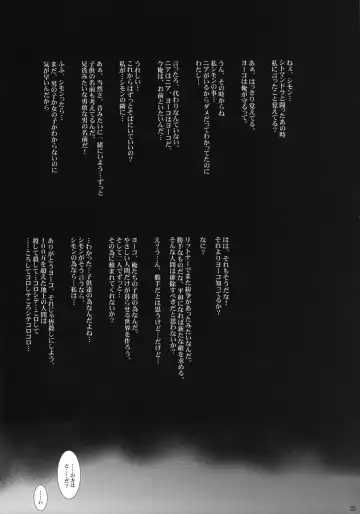 ねぇ、シモン…
シトマンドラと闘ったあの時
私に言ったこと覚えてる？
あぁ、はっきり覚えてる。
ヨーコは俺が守るって。
うん、その時からね
私がシモンの事…
ニアがいるからダメだってわかってたのに
わたし…
言ったろ、代わりなんていない。
ニアはニア、ヨーコはヨーコだ。
今は、お前といたいんだ。
うれしい…
これからはずっとそばにいていい？
私がシモンの隣に…
あぁ、当然さ、昔みたいに一緒にいよう…ずっと
子供の名前も考えてるんだ。
兄貴みたいな勇敢な男の名前だ！
ふふ、シモンったら…
まだ、男の子か女の子かわからないのに
気が早いんだから…
はは、それもそうだな！
それよりヨーコ知ってるか？
なに？
リットナーでまた紛争があったみたいなんだ。
勝手なものだな、平和になれば新たな敵を求める。
そんな人間は排除すべきだと思わないか？
え？う…ん、勝手だとは思うけど…でも
ヨーコ、俺たちの子供の為に
やさしい人間だけが暮らせる世界を作ろう。
そして二人でずっと…
その為に頼まれてくれないか？
…わかった…子供達の為なんだよね
シモンがそう言うなら…
シモンの為なら私…
ありがとうヨーコ、それじゃ皆殺しにしよう。
１００万を超えた地上の人類は
殺して殺して…コロシテ…コロして
……ころしてコロシテころシテコロコロ…
…の方は
ど…だ？